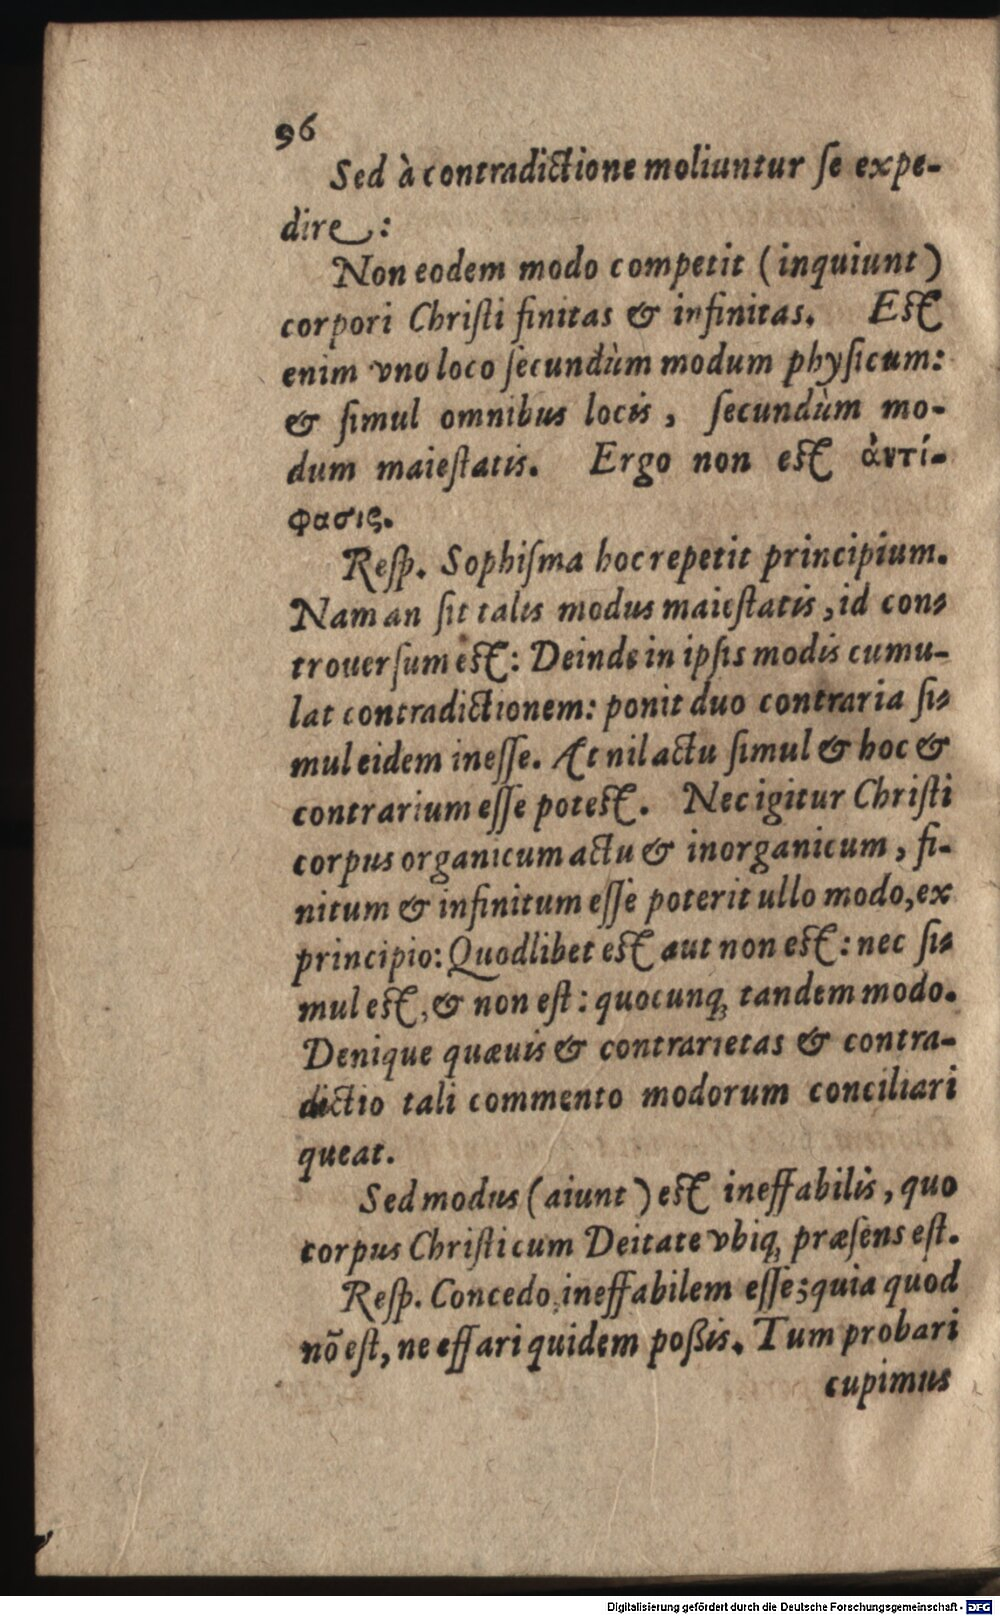 96
Sed à contradictione moliuntur ſe expe-
dire:
Non eodem modo competit (inquiunt)
corpori Chriſti finitas & infinitas. Eſt
enim vno loco ſecundùm modum phyſicum:
& ſimul omnibus locis, ſecundùm mo-
dum maieſtatis. Ergo non eſt ἀντί-
φασις.
Reſp. Sophiſma hoc repetit principium.
Nam an ſit talis modus maieſtatis, id con-
trouerſum eſt: Deinde in ipſis modis cumu-
lat contradictionem: ponit duo contraria ſi-
mul eidem ineſſe. At nil actu ſimul & hoc &
contrarium eſſe poteſt. Nec igitur Chriſti
corpus organicum actu & inorganicum, fi-
nitum & infinitum eſſe poterit ullo modo, ex
principio: Quodlibet eſt aut non eſt: nec ſi-
mul eſt, & non eſt: quocunq; tandem modo.
Denique quæuis & contrarietas & contra-
dictio tali commento modorum conciliari
queat.
Sed modus (aiunt) eſt ineffabilis, quo
corpus Chriſti cum Deitate vbiq; præſens eſt.
Reſp. Concedo ineffabilem eſſe; quia quod
nõ eſt, ne effari quidem poßis. Tum probari
cupimus
Digitalisierung gefördert durch die Deutsche Forschungsgemeinschaft - DFG